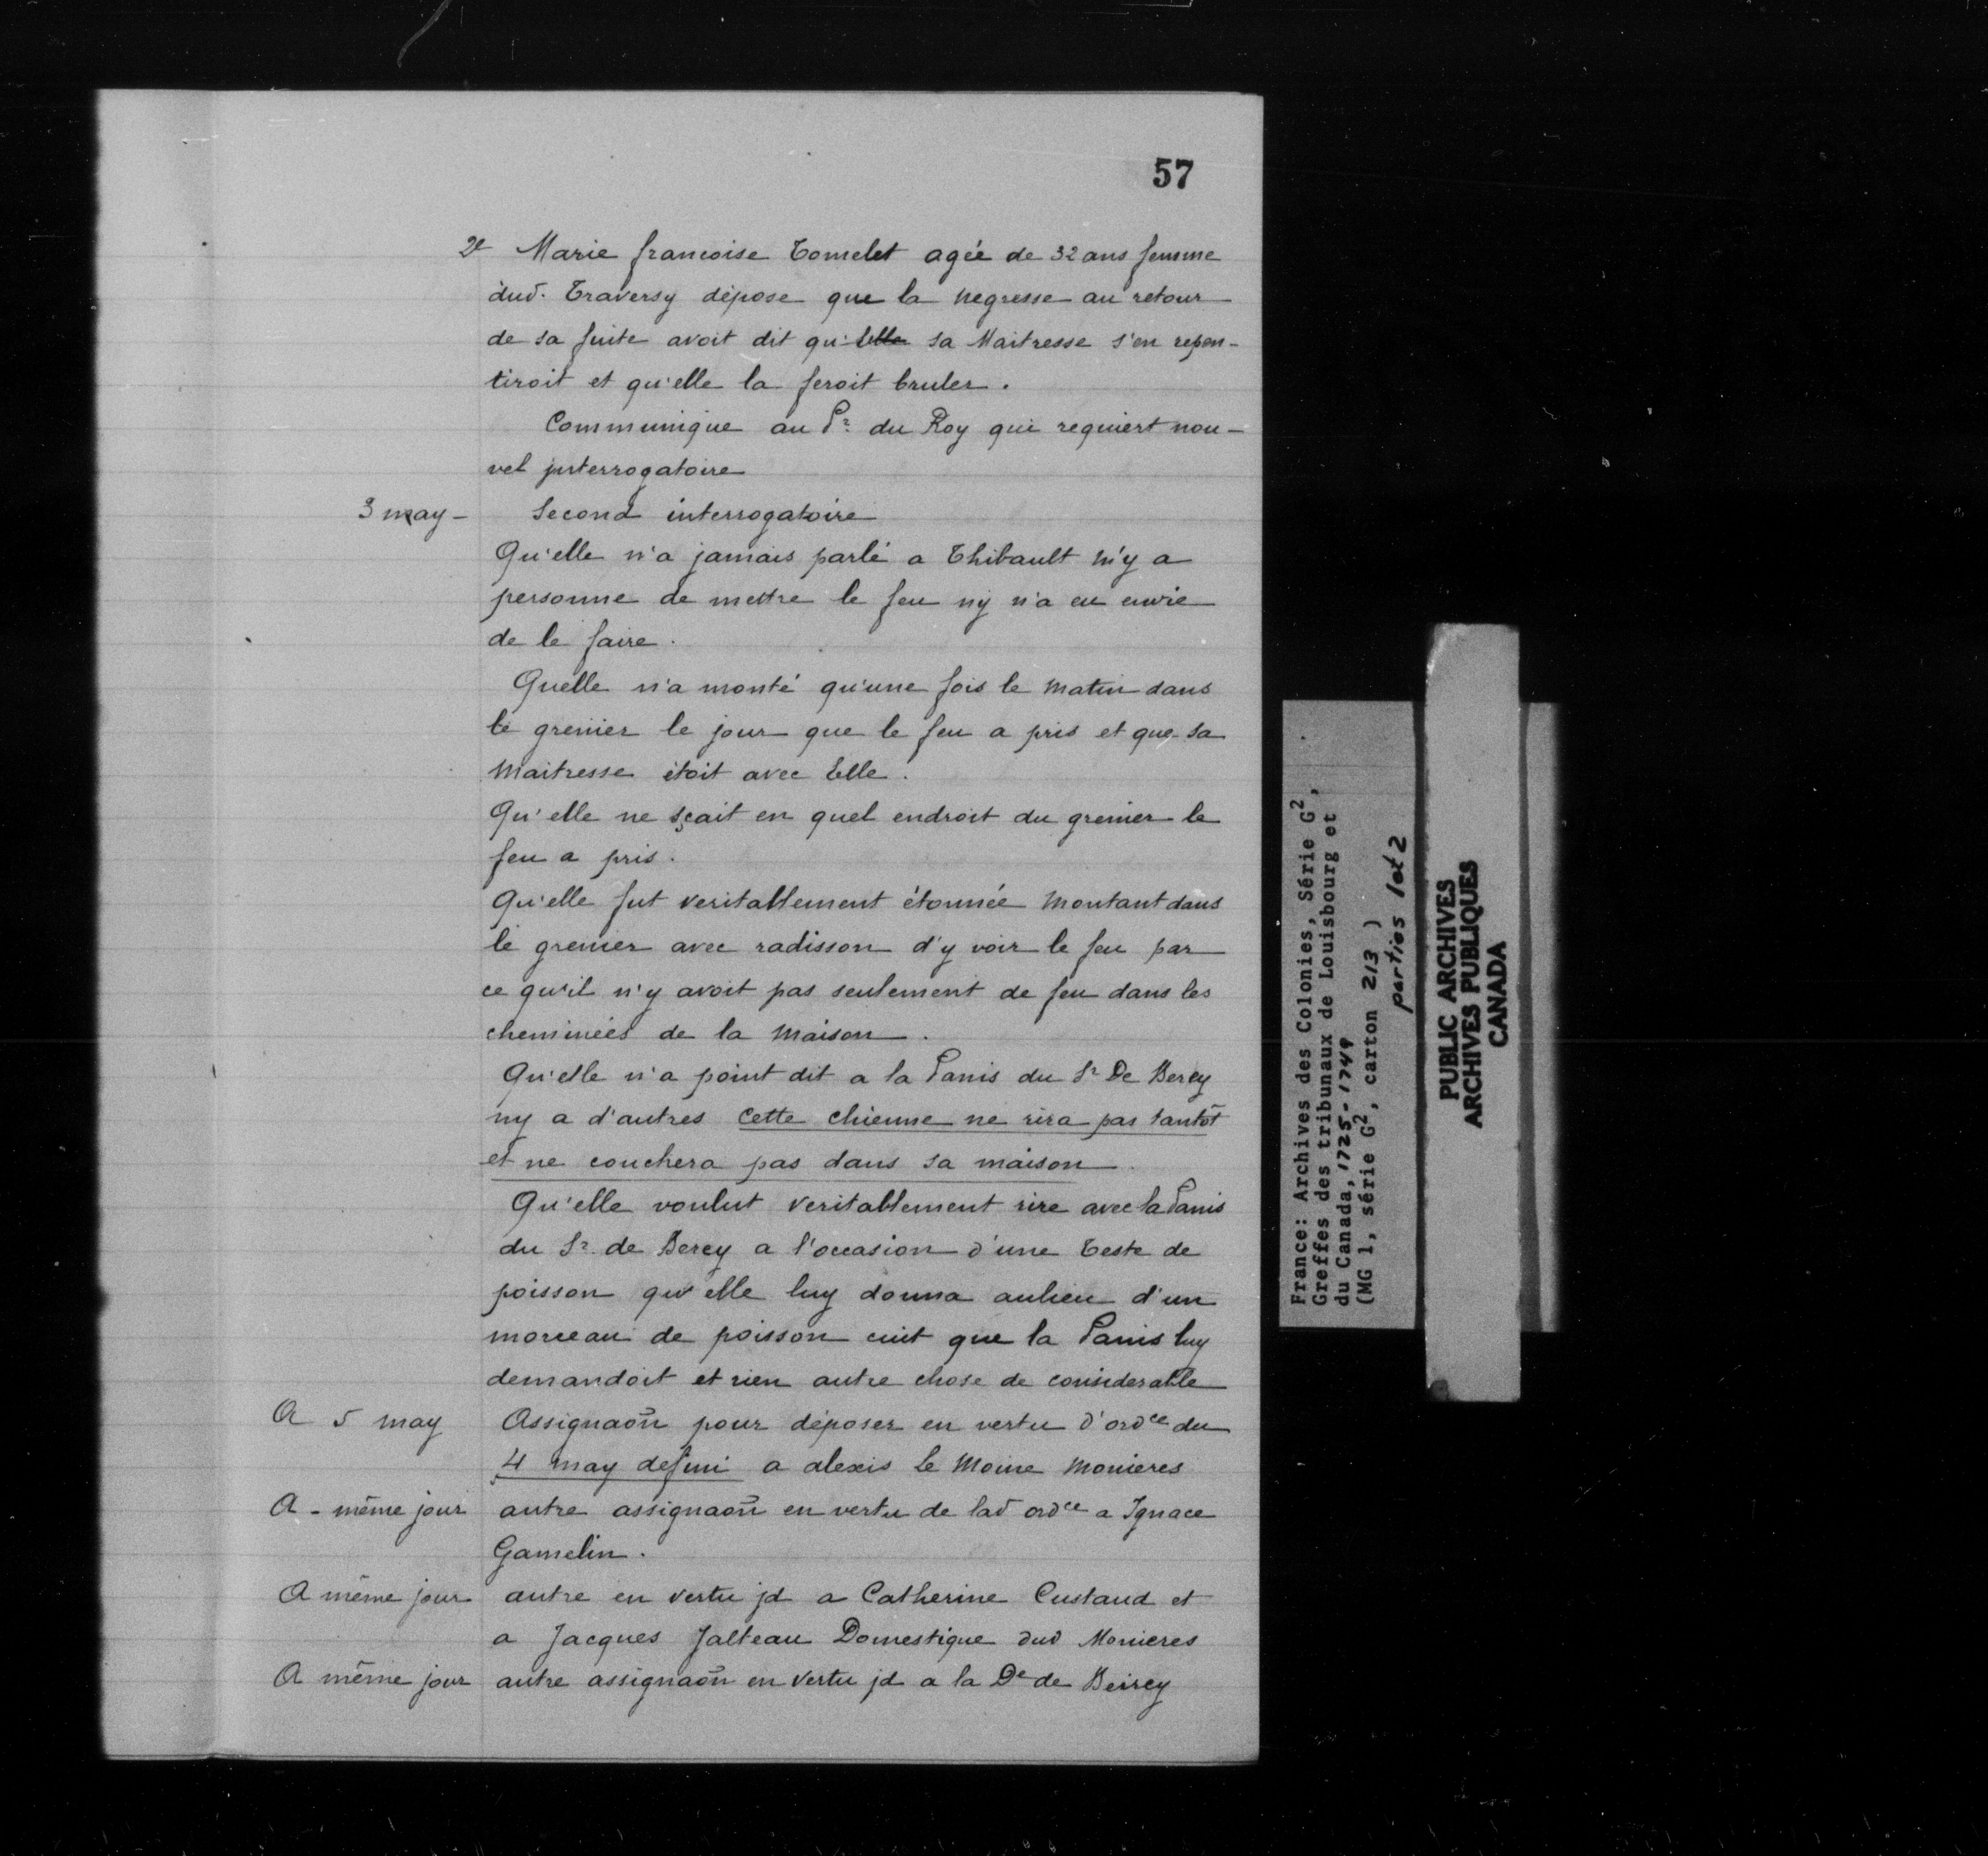 57
2e Marie francoise Tomelet agée de 32 ans femme
dud. Traversy dépose que la negresse au retour
de sa fuite avoit dit qu'elle sa Maitresse s'en repen-
tiroit et qu'elle la feroit bruler.
Communiqué au Pr. du Roy qui requiert nou-
vel jnterrogatoire
3 may - Second interrogatoire
Qu'elle n'a jamais parlé a Thibault n'y a
personne de mettre le feu ny n'a eu envie
de le faire.
Quelle n'a monté qu'une fois le matin dans
le grenier le jour que le feu a pris et que sa
Maitresse étoit avec Elle.
Qu'elle ne sçait en quel endroit du grenier le
feu a pris.
Qu'elle fut veritablement étonnée montant dans
le grenier avec radisson d'y voir le feu par
ce qu'il n'y avoit pas seulement de feu dans les
cheminées de la Maison.
Qu'elle n'a point dit a la Panis du Sr De Berey
ny a d'autres cette chienne ne rira pas tantôt
et ne couchera pas dans sa maison.
Qu'elle voulut veritablement rire avec la Panis
du Sr. de Berey a l'occasion d'une Teste de
poisson qu'elle luy donna aulieu d'un
morceau de poisson cuit que la Panis luy
demandoit et rien autre chose de considerable
A 5 may Assignaõn pour déposer en vertu d'ordce du
4 may defini a alexis le Moine Monieres
A - même jour autre assignaõn en vertu de lad ordce a Ignace
Gamelin.
A même jour autre en vertu jd a Catherine Custaud et
a Jacques Jalteau Domestique dud Monieres
A même jour autre assignaõn en vertu jd a la De de Beirey
France: Archives des Colonies, Série G2,
Greffes des tribunaux de Louisbourg et
du Canada, 1725-1749
(MG 1, série G2, carton 213 )
parties 1et 2
PUBLIC ARCHIVES
ARCHIVES PUBLIQUES
CANADA